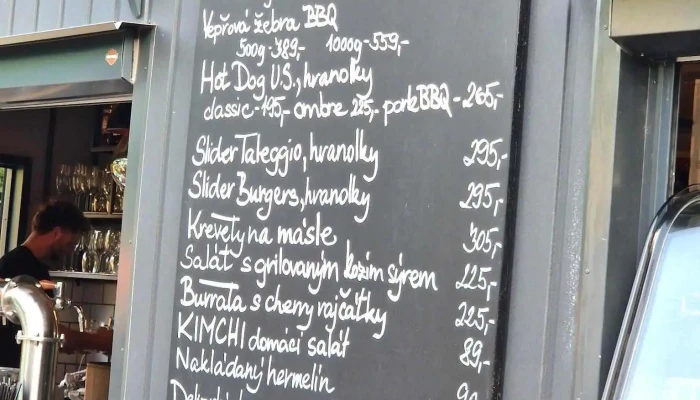 Vepřová žebra BBQ
500g-389,- 1000g-559,-
Hot Dog U.S., hranolky
classic-195,- ombre 225,- porkBBQ-265,-
Slider Taleggio, hranolky 295,-
Slider Burgers, hranolky 295,-
Krevety na másle 305,-
Salát s grilovaným kozím sýrem 225,-
Burrata s cherry rajčátky 225,-
KIMCHI domácí salát 89,-
Nakládaný hermelín